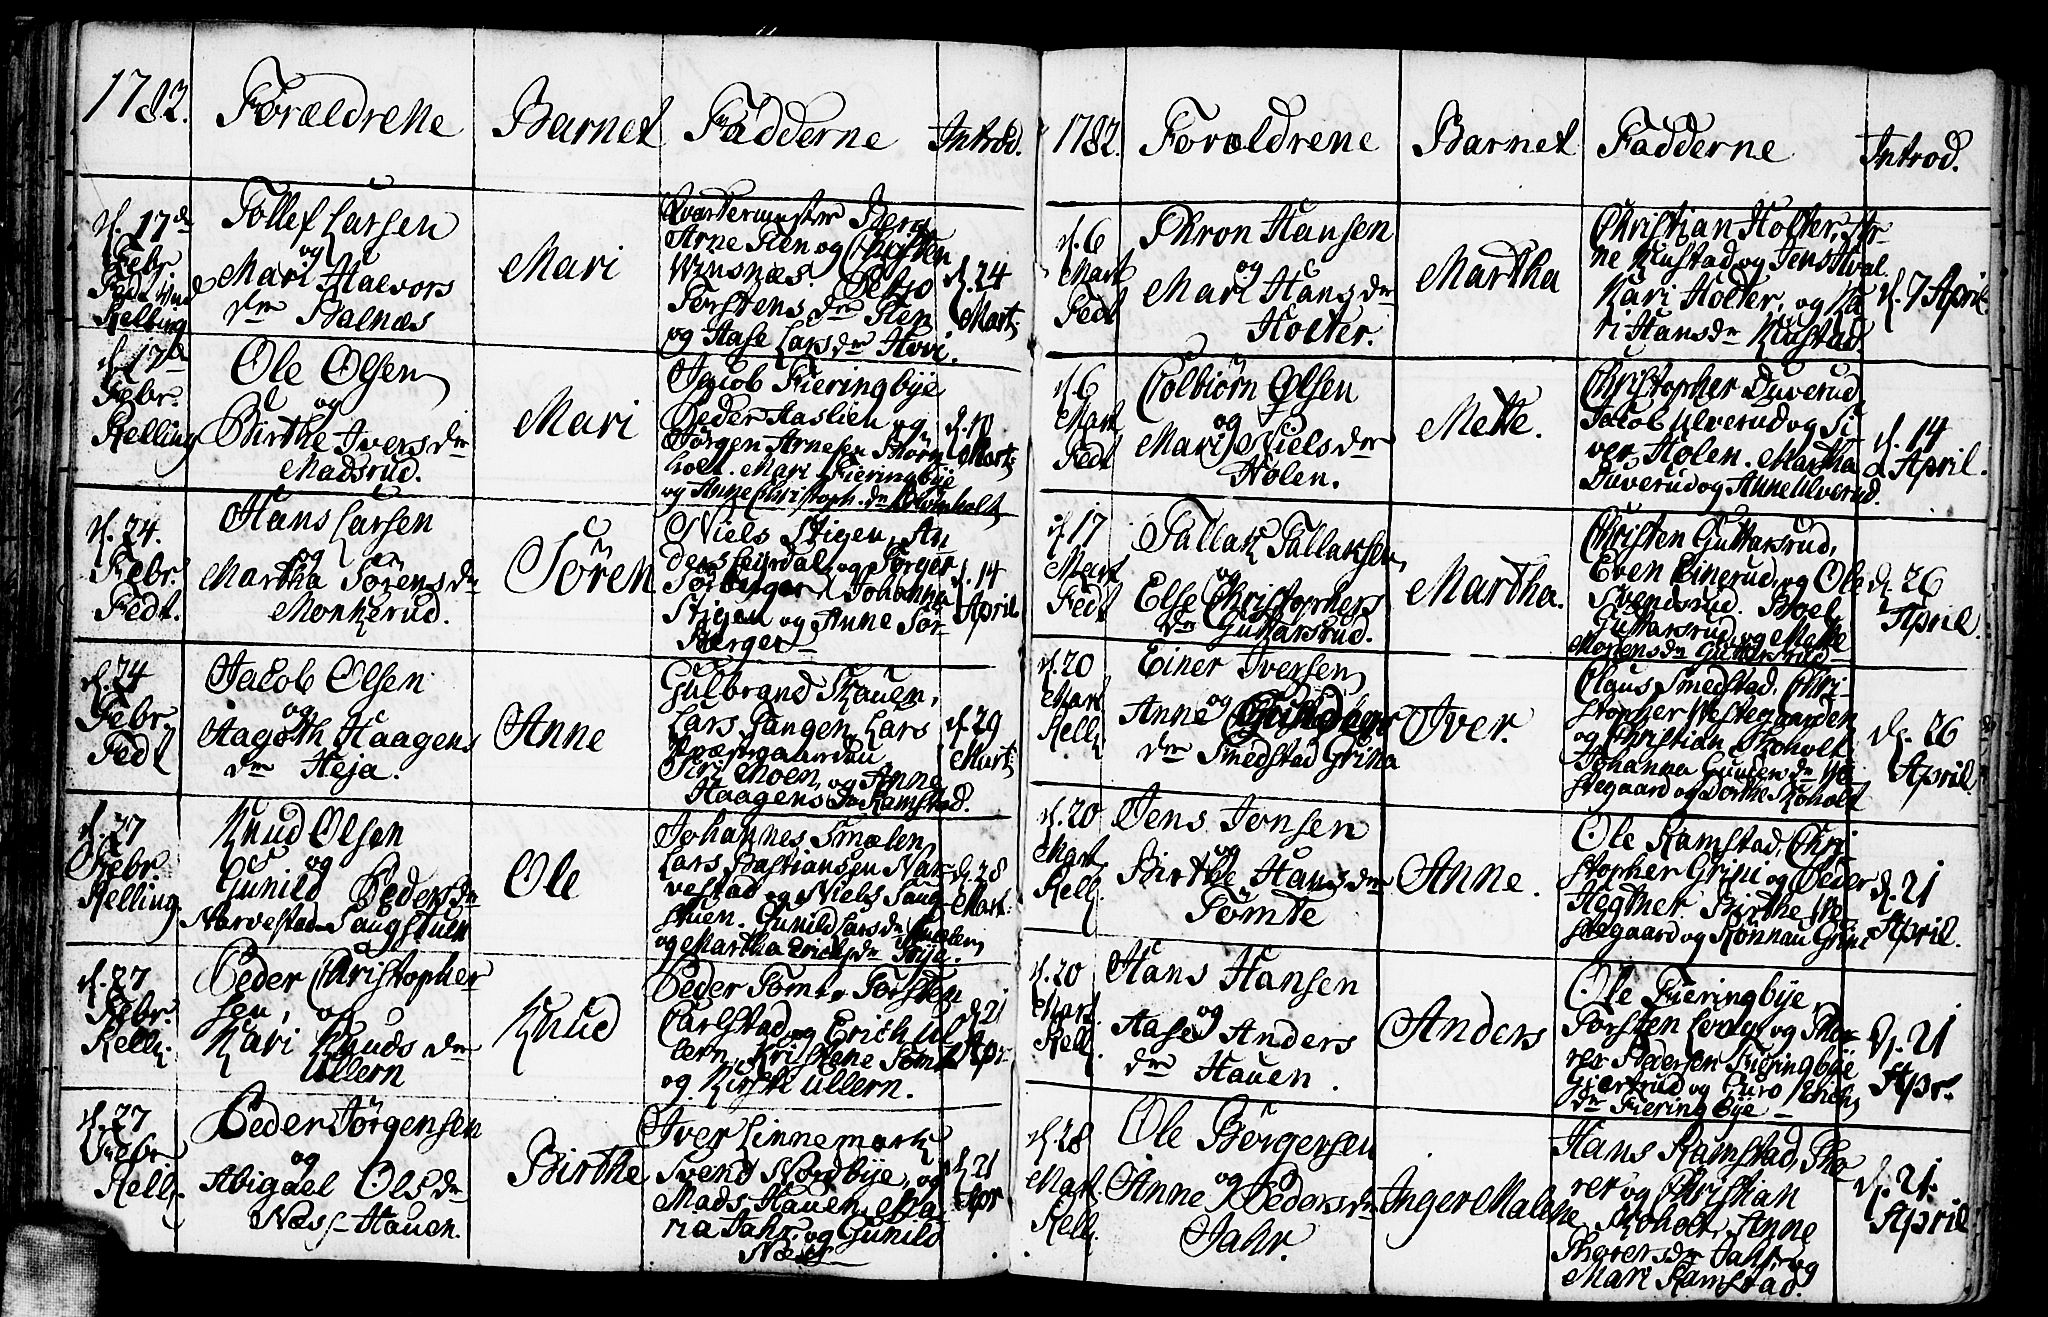 1782.
Forældrene
Barnet
Fadderne
Introd.
d. 17de
Febr.
Fedt
Kelling
Tollef Larsen
og
Mari Halvors
dr Balnæs
Mari
Qvartermester Berg
Arne Fien og Christen
Winsnæs.
Torstens dr Fien
og Aase Lars dr Hovi.
d. 24
Mart:
d. 17de
Febr.
Kelling
Ole Olsen
og
Birthe Ivers dr
Madsrud.
Mari
Jacob Fieringbye
Peder Haslien og
Jørgen Arnesen
holt. Mari Fieringbye
og Anne Christoph. dr
d. 10
Mart:
d. 24.
Febr.
Fedt.
Hans Larsen
og
Martha Sørens dr
Monkerud.
Sören
Niels Stigen, An
ders Leirdal og Torger
Torberger Johanna
Stigen og Anne Tor-
berger
d. 14
April
d. 24
Febr.
Fedt
Jacob Olsen
og
Aagoth Haagens
dr Heja.
Anne
Gulbrand Skauen,
Lars Langen, Lars
Siri Moen, og Anne
Haagens dr Ramstad.
d. 29
Mart:
d. 27
Febr.
Kelling
Knud Olsen
og
Gunild Peders dr
Narvestad Saugstuen
Ole
Johannes Smælen
Lars Bastiansen Nar-
vestad og Niels Saug-
stuen. Gunild Lars dr Smælen
og Martha Erichs dr
d. 28
Mart:
d. 27
Febr.
Kell:
Peder Christopher
sen, og
Kari Knuds dr
Ullern
Knud
Peder Tomte Torsten
Carlstad og Erich Ul
lern, Kristene Tomte
og Kirsti Ullern.
d. 21
Apr.
d. 27
Febr
Kell:
Peder Jörgensen
og
Abigael Ols dr
Næss-Hauen.
Birthe
Iver Linnemark
Svend Nordbye, og
Mads Hauen, Ma
ria Jahr, og Gunild
Næss
d. 21
Apr
1782.
Forældrene
Barnet
Fadderne
Introd.
d. 6
Mart
Fedt
Thron Hansen
og
Mari Hans dr
Holter.
Martha
Christian Holter, Ar-
ne Kiustad og Jens Hval.
Kari Holter, og Ka
ri Hans dr Kiustad
d. 7 April
d. 6
Mart
Fedt
Colbiörn Olsen
og
Mari Niels dr
Holen.
Mette.
Christopher Duverud
Jacob Ulverud og Si
ver Holen. Martha
Duverud og Anne Ulverud.
d. 14
April.
d. 17
Mart
Fedt
Tallak Tallaksen,
og
Else Christophers
dr Guttarsrud.
Martha.
Christen Guttarsrud,
Even Einerud, og Ole
Svendsrud. Boel
Guttarsrud og Mette
Mortens dr Guttarsrud
d. 26
April.
d. 20
Mart
Kell:
Einer Iversen
og
Anne
dr Smedstad Grina
Iver.
Claus Smedstad, Chri-
stopher Westegaarden
og Christian Skoholt
Johanna Gunders dr We
stegaard og Dorthe Skoholt
d. 26
April.
d. 20
Mart.
Kell:
Jens Jensen
og
Birthe Hans dr
Tømte
Anne.
Ole Ramstad, Chri
stopher Grini og Peder
Hegtner. Birthe We
stegaard og Rönnau Grini
d. 21
April.
d. 20
Mart.
Kell:
Hans Hansen
og
Aase Anders
dr Hauen.
Anders
Ole Fieringbye,
Torsten og Tho-
rer Pedersen Fieringbye
Giertrud og Guro Erichs
dr Fieringbye
d. 21
Apr.
d. 28
Mart.
Kell:
Ole Börgersen
og
Anne Peders dr
Jahr.
Inger Male
ne
Hans Ramstad, Tho
rer og Christian
Skoholt, Anne
Thorers dr Jahr, og
Mari Ramstad.
d. 21.
April